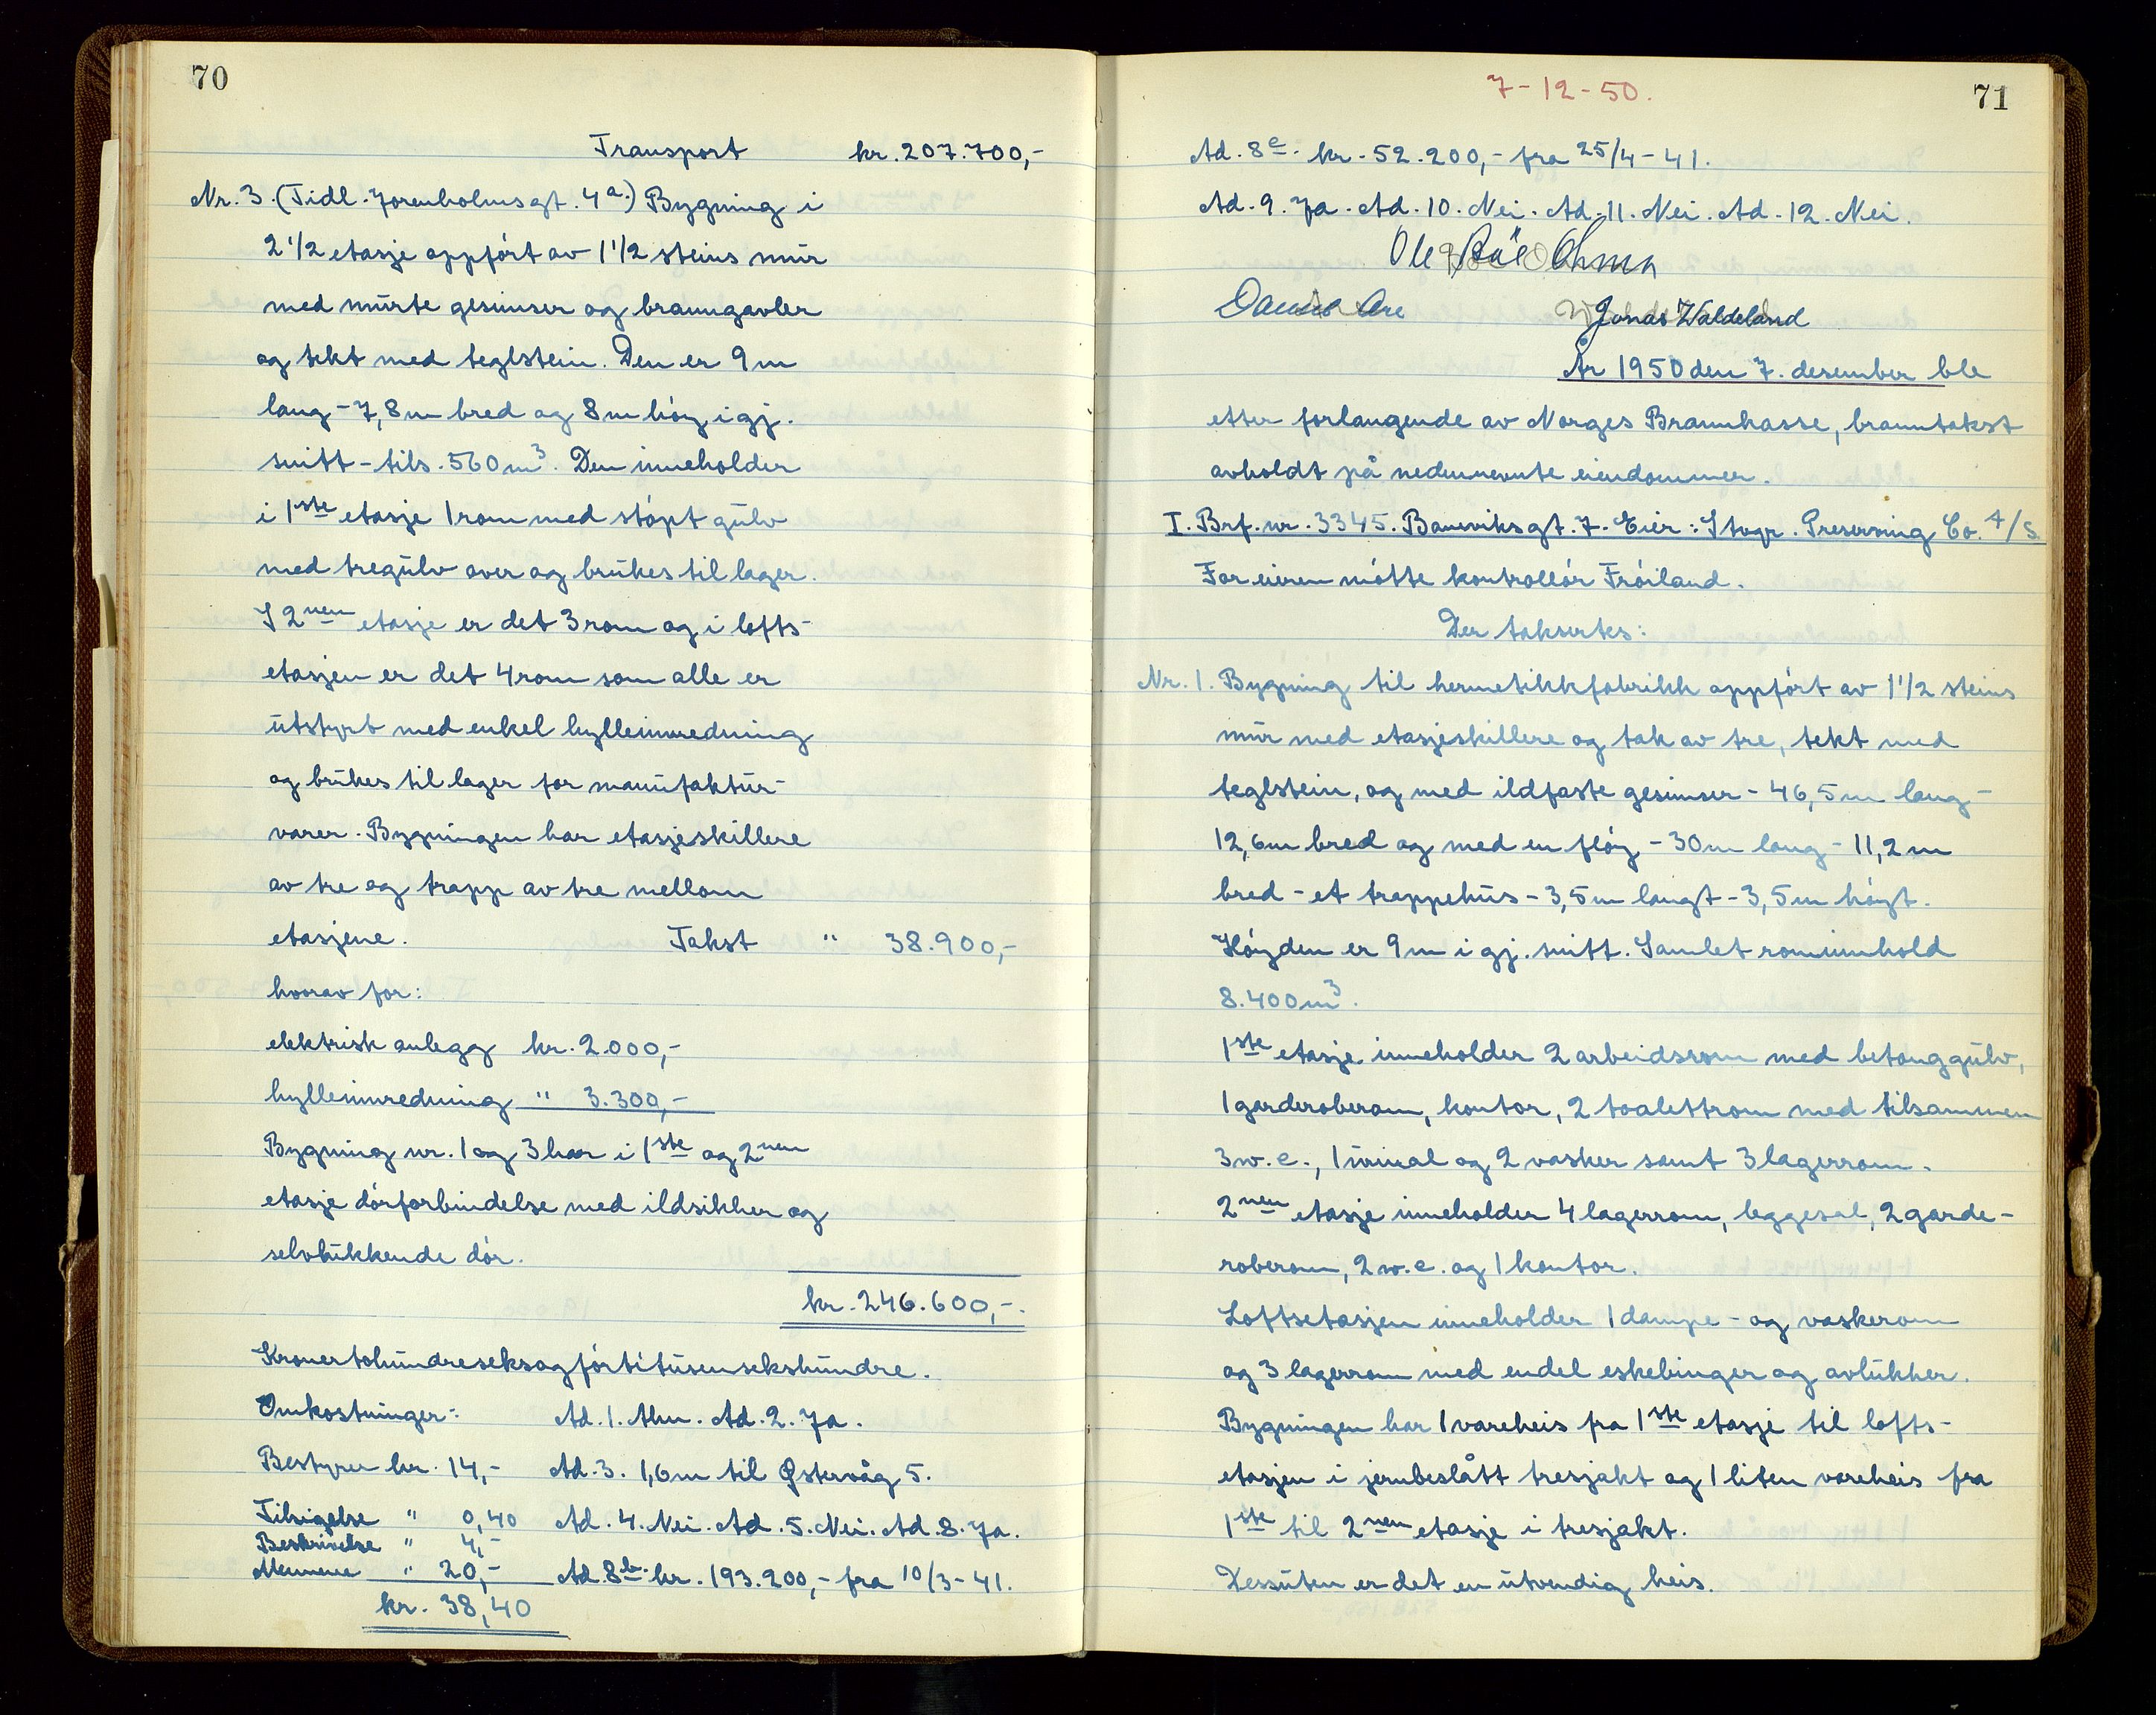 70
Transport kr. 207.700,-
Nr. 3. (Tidl. Jorenholmsgt. 4a.) Bygning i
2 1/2 etasje oppført av 1 1/2 steins mur
med murte gesimser og branngavler
og tekt med teglstein. Den er 9 m
lang - 7,8 m bred og 8 m høg i gj.
snitt - tils. 560 m³. Den inneholder
i 1ste etasje 1 rom med støpt gulv
med tregulv over og brukes til lager.
I 2nen etasje er det 3 rom og i lofts-
etasjen er det 4 rom som alle er
utstyrt med enkel hylleinnredning
og brukes til lager for manufaktur-
varer. Bygningen har etasjeskillere
av tre og trapp av tre mellom
etasjene. Takst " 38.900,-
hvorav for:
elektrisk anlegg kr. 2.000,-
hylleinnredning " 3.300,-
Bygning nr. 1 og 3 har i 1ste og 2nen
etasje dørforbindelse med ildsikker og
selvlukkende dør.
kr. 246.600,-.
Kronertohundreseksogførtitusensekshundre.
Omkostninger: Ad. 1. Alm. Ad. 2. Ja.
Bestyrer kr. 14,- Ad. 3. 1,6 m til Østervåg 5.
Tilsigelse " 0,40 Ad. 4. Nei. Ad. 5. Nei. Ad. 8. Ja.
Beskrivelse " 4,-
Mennene " 20,- Ad 8b. kr. 193.200,- fra 10/3-41.
kr. 38,40
7-12-50.
71
Ad. 8c. kr. 52.200,- fra 25/4-41.
Ad. 9. Ja. Ad. 10. Nei. Ad. 11. Nei. Ad. 12. Nei.
Jonas Waldeland
År 1950 den 7. desember ble
etter forlangende av Norges Brannkasse, branntakst
avholdt på nedennevnte eiendommer.
I. Brf. nr. 3345. Baneviksgt. 7. Eier: Stvgr. Preserving Co. A/S
For eieren møtte kontrollør Frøiland.
Der takseres:
Nr. 1. Bygning til hermetikkfabrikk oppført av 1 1/2 steins
mur med etasjeskillere og tak av tre, tekt med
teglstein, og med ildfaste gesimser - 46,5 m lang -
12,6 m bred og med en fløy - 30 m lang - 11,2 m
bred - et trappehus - 3,5 m langt - 3,5 m høgt.
Høyden er 9 m i gj. snitt. Samlet rominnhold
8.400 m³.
1ste etasje inneholder 2 arbeidsrom med betonggulv,
1 garderoberom, kontor, 2 toalettrom med tilsammen
3 w.c., 1 urinal og 2 vasker samt 3 lagerrom.
2nen etasje inneholder 4 lagerrom, leggesal, 2 garde-
roberom, 2 w.c. og 1 kontor.
Loftsetasjen inneholder 1 dampe- og vaskerom
og 3 lagerrom med endel eskebinger og avlukker.
Bygningen har 1 vareheis fra 1ste etasje til lofts-
etasjen i jernbeslått tresjakt og 1 liten vareheis fra
1ste til 2nen etasje i tresjakt.
Dessuten er det en utvendig heis.